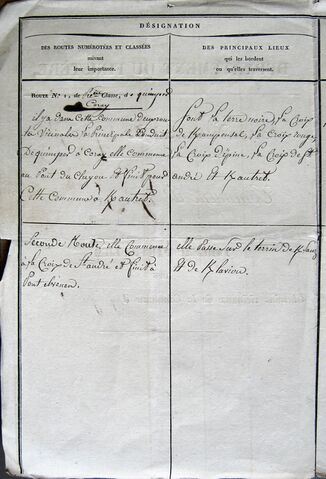 DÉSIGNATION
DES ROUTES NUMÉROTÉES ET CLASSÉES
suivant
leur importance.
DES PRINCIPAUX LIEUX
qui les bordent
ou qu'elles traversent.
ROUTE N.° 1, de Classe, de quimper à
Coray
il y a dans Cette Commune
principale Conduit
De quimper à Coray elle commence
au Pont du Cleyou et finit pour
Cette Commune à Kautret
Sont la terre noire, la Croix
de la Croix rouge,
la Croix D'épine, la Croix de St
andré et Kautret.
Seconde Route, elle Commence
à la Croix de St andré et finit à
Pont
elle Passe sur le terrein de
et de Klaviou.